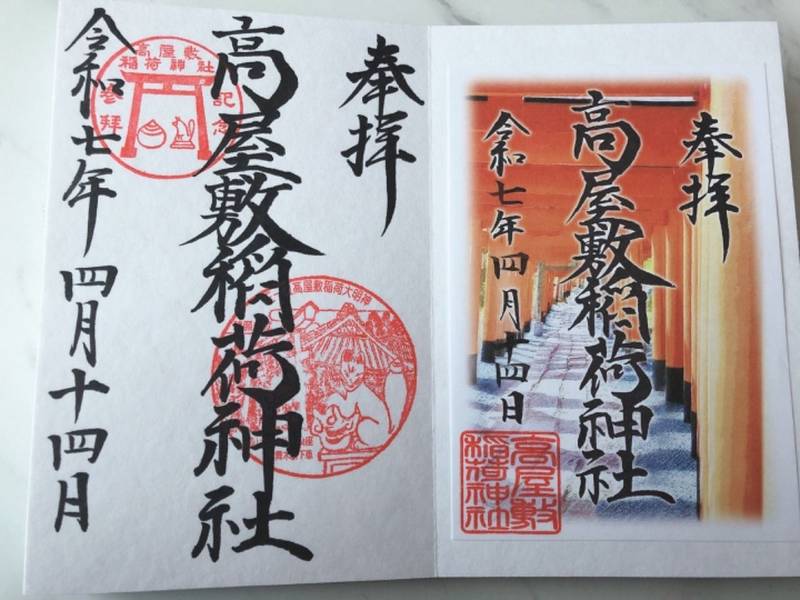 奉拝
高屋敷稲荷神社
令和七年四月十四日
高屋敷
稲荷神社
奉拝
高屋敷稲荷神社
高屋敷稲荷大明神
令和七年 四月十四月
高屋敷
稲荷神社
参拝
記念